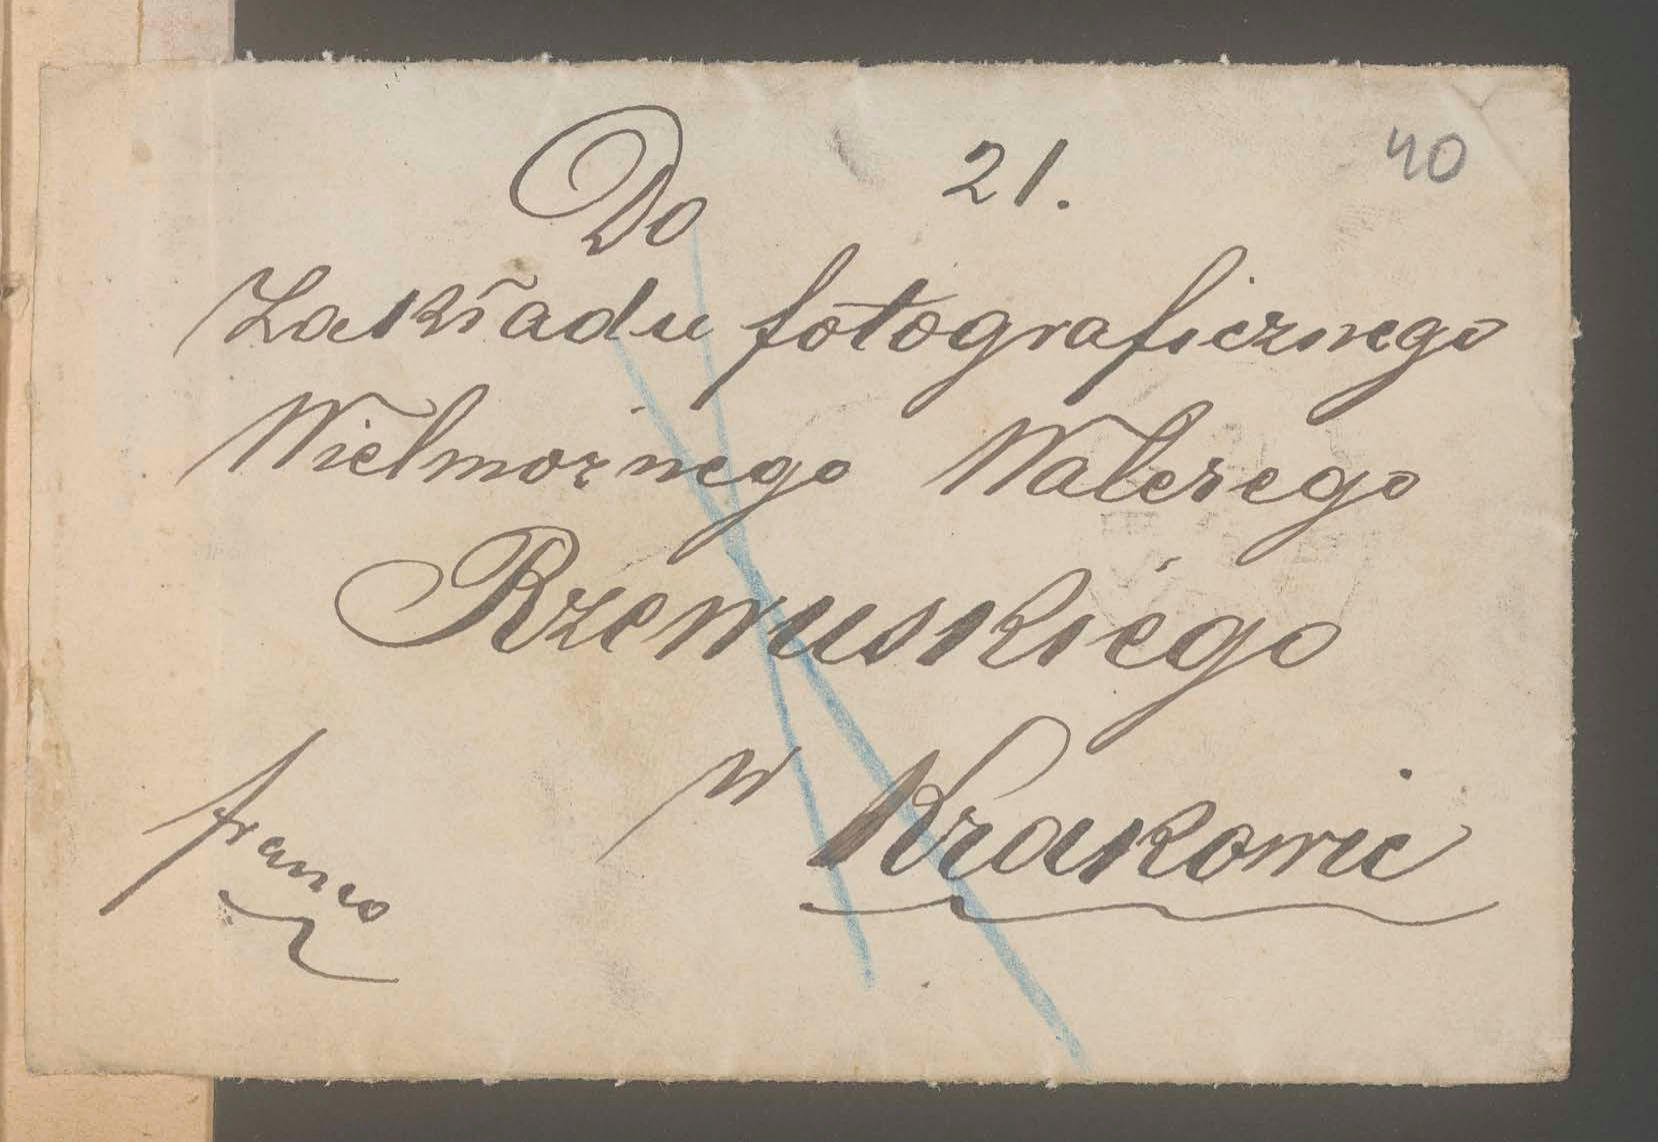 Do 21. 40
Zakładu fotograficznego
Wielmożnego Walerego
Rzewuskiego
w Krakowie
franco